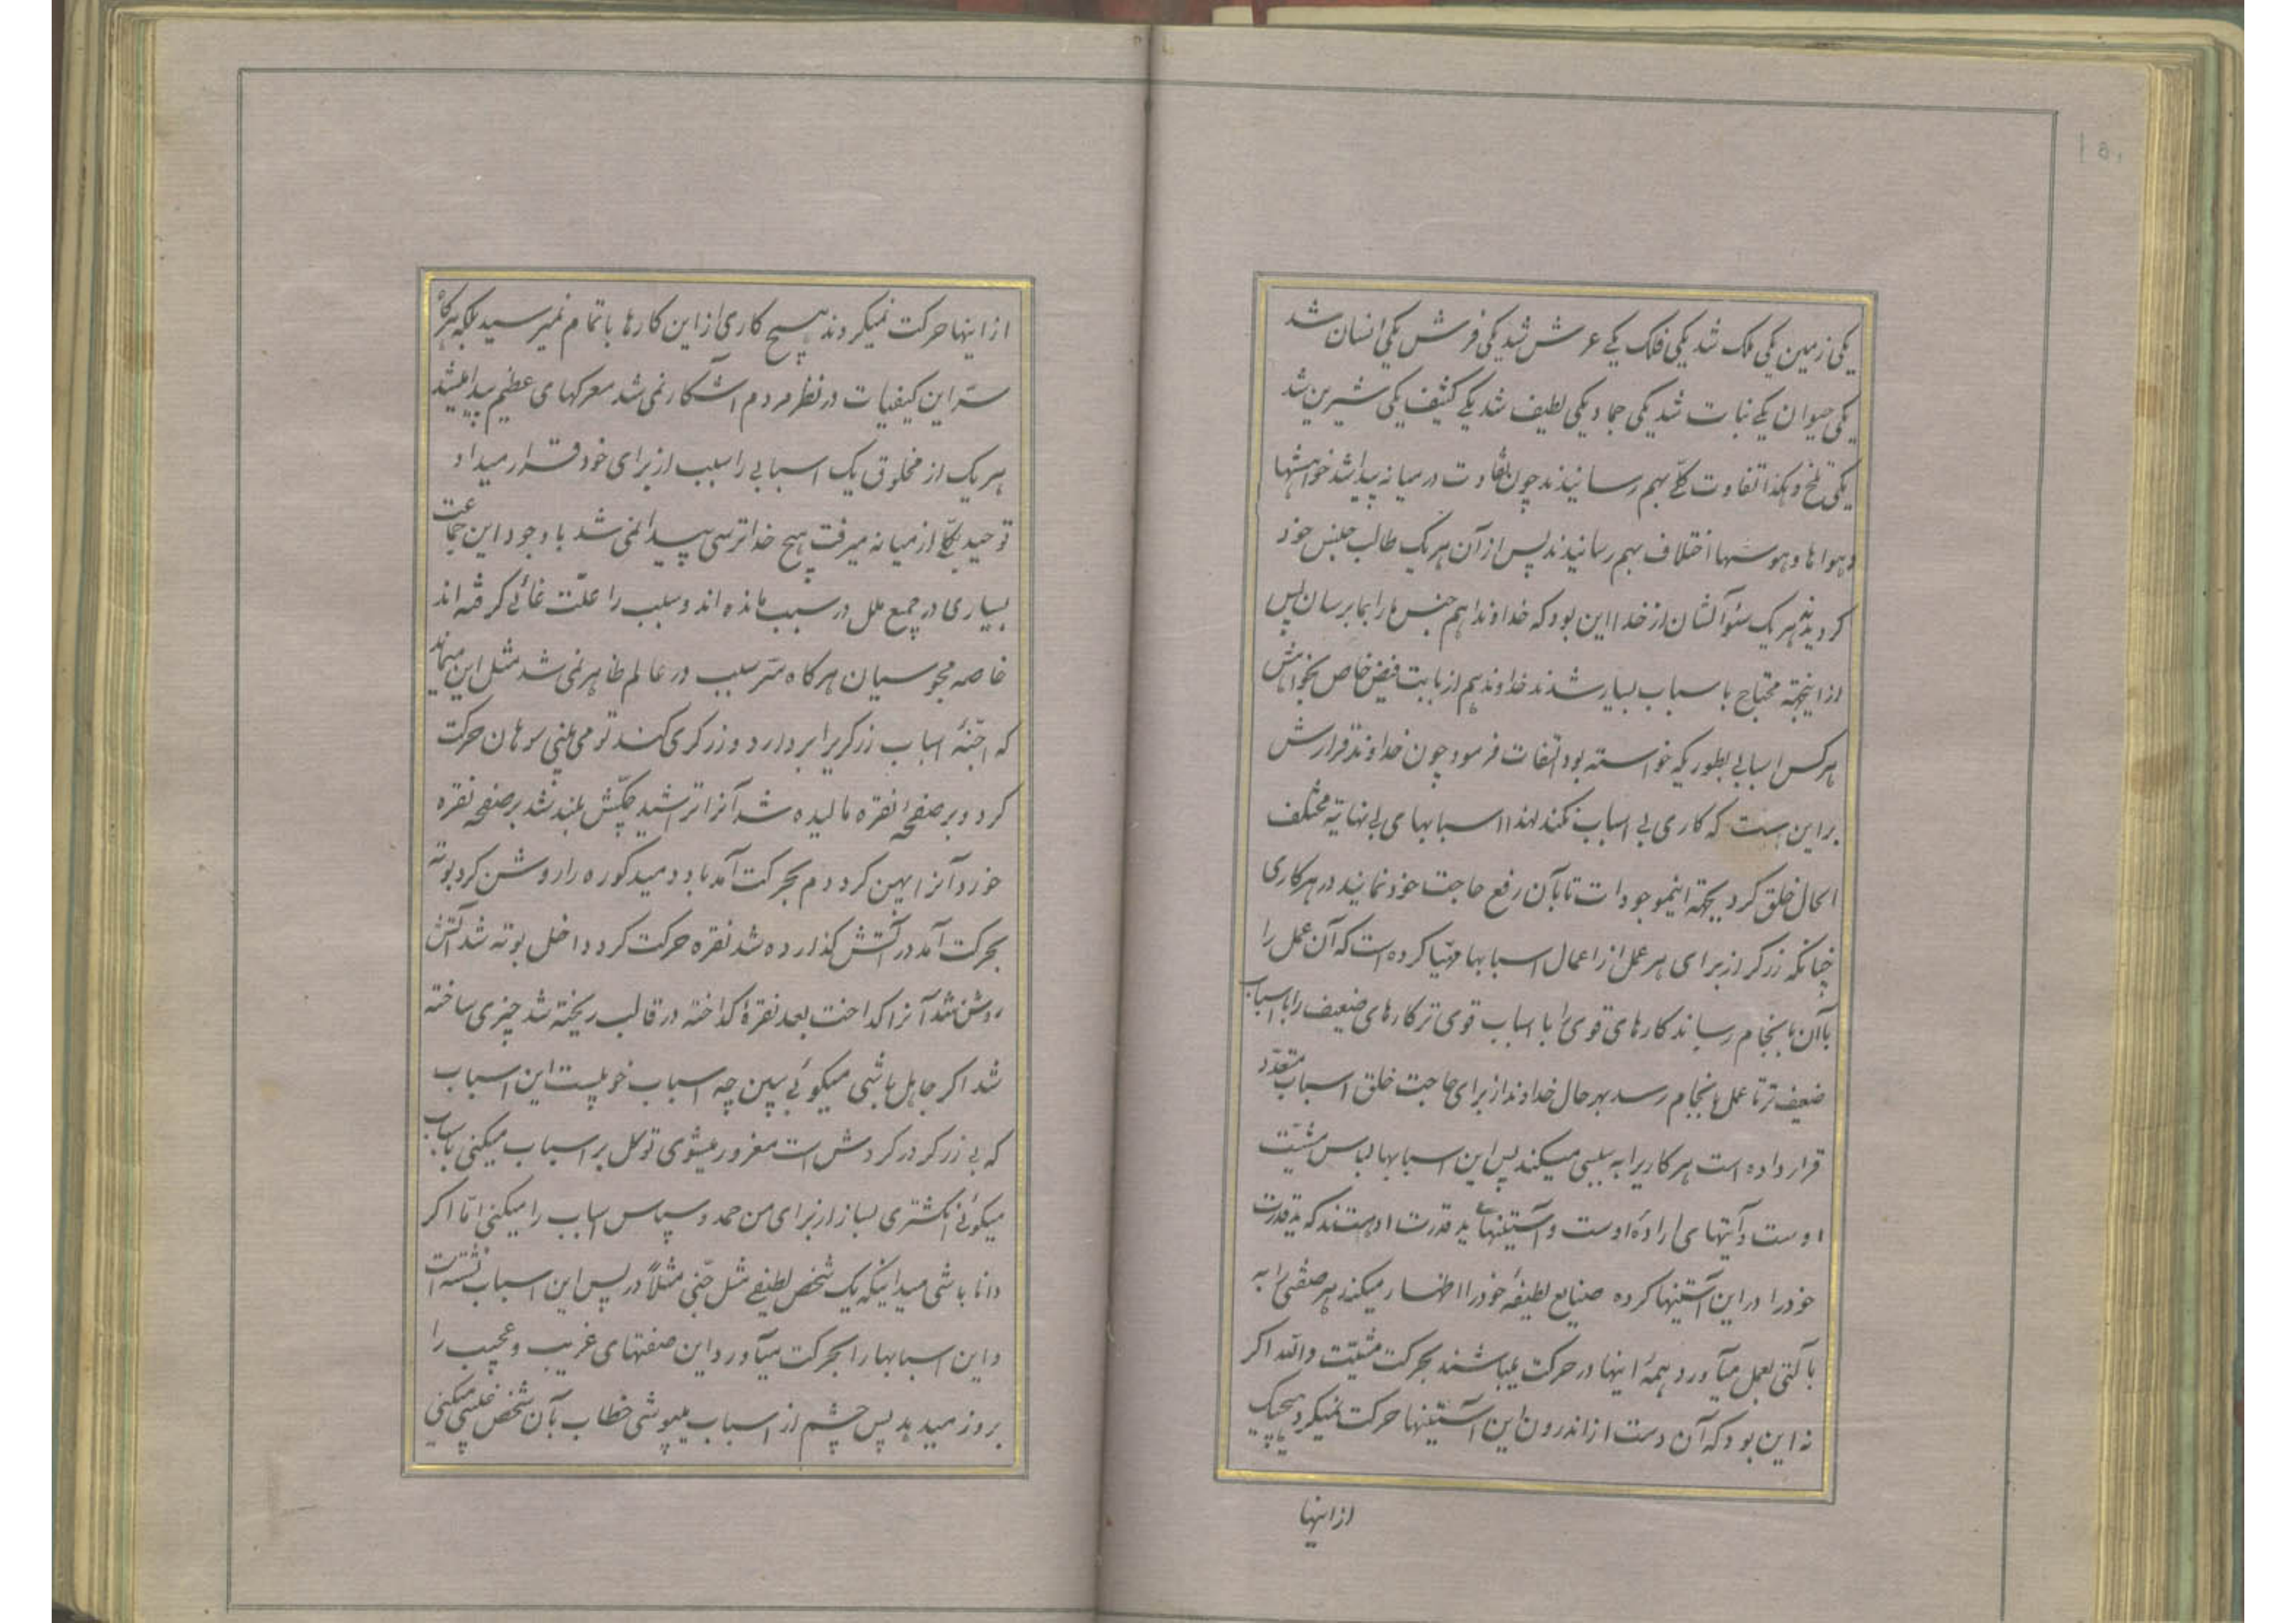 یکی زمین یکی ملک شد یکی فلک یکے عرش شد یکی فرش یکی انسان شد
یکی حیوان یکے نبات شد یکی جماد یکی لطیف شد یکے کثیف یکی شیرین شد
یکی تلخ و هکذا تفاوت کلّے بهم رسانیدند چون تفاوت در میانه پیدا شد خواهشها
و هواها و هوسها اختلاف بهم رسانیدند پس از آن هر یک طالب جنس خود
کردیدند هر یک سئوالشان از خدا این بود که خداوندا هم جنس ما را بما برسان پس
از اینجهة محتاج باسباب بسیار شدند خداوند هم از بابت فیض خاص بخواهش
هر کس اسبابی بطوریکه خواسته بود التفات فرمود چون خداوند قرارش
بر این است که کاری بی اسباب نکند لهذا اسبابهای بی نهایة مختلف
الحال خلق کرد بجهة اینموجودات تا بآن رفع حاجت خود نمایند در هر کاری
چنانکه زرکر از برای هر عمل از اعمال اسبابها مهیّا کرده است که آن عمل را
باآن بانجام رساند کارهای قوی را با اسباب قوی تر کارهای ضعیف را با اسباب
ضعیف تر تا عمل بانجام رسد بهر حال خداوند از برای حاجت خلق اسباب متعدّد
قرار داده است هر کاریرا به سببی میکند پس این اسبابها لباس مشیّت
اوست و آیتهای ارادۀ اوست و آستینهای ید قدرت او هستند که ید قدرت
خود را در این آستینها کرده صنایع لطیفۀ خود را اظهار میکند هر صنعتی را به
بآلتی بعمل میآورد همۀ اینها در حرکت میباشند بحرکت مشیّت والله اکر
نه این بود که آن دست از اندرون این آستینها حرکت نمیکرد هیچیک
از اینها
از اینها حرکت نمیکردند هیچ کاری از این کارها باتمام نمیرسید بلکه هرکاه
سرّ این کیفیات در نظر مردم آشکار نمی شد معرکهای عظیم پیدا میشد
هر یک از مخلوق یک اسبابی را سبب از برای خود قرار میداد
توحید بکلّی از میانه میرفت هیچ خداترسی پیدا نمی شد با وجود این جماعت
بسیاری در جمیع ملل در سبب مانده اند و سبب را علّت غائے کرفته اند
خاصه مجوسیان هرکاه سرّ سبب در عالم ظاهر نمی شد مثل این میماند
که اجنّۀ اسباب زرکریرا بردارد و زرکری کند تو می بینی سوهان حرکت
کرد و بر صفحۀ نقره مالیده شد آنرا تراشید چکّش بلند شد بر صفحه نقره
خورد آنرا پهن کرد دم بحرکت آمد باد دمید کوره را روشن کرد بوته
بحرکت آمد در آتش کذارده شد نقره حرکت کرد داخل بوته شد آتش
روشن شد آنرا کداخت بعد نقرۀ کداخته در قالب ریخته شد چیزی ساخته
شد اکر جاهل باشی میکوئی ببین چه اسباب خوبیست این اسباب
که بی زرکر در کردش است مغرور میشوی توکل بر اسباب میکنی باسباب
میکوئی انکشتری بساز از برای من حمد و سپاس اسباب را میکنی امّا اکر
دانا باشی میدانیکه یک شخص لطیفے مثل جنّی مثلاً در پس این اسباب نشسته است
و این اسبابها را بحرکت میآورد و این صنعتهای غریب و عجیب را
بروز میدهد پس چشم از اسباب میپوشی خطاب بآن شخص غیبی میکنی